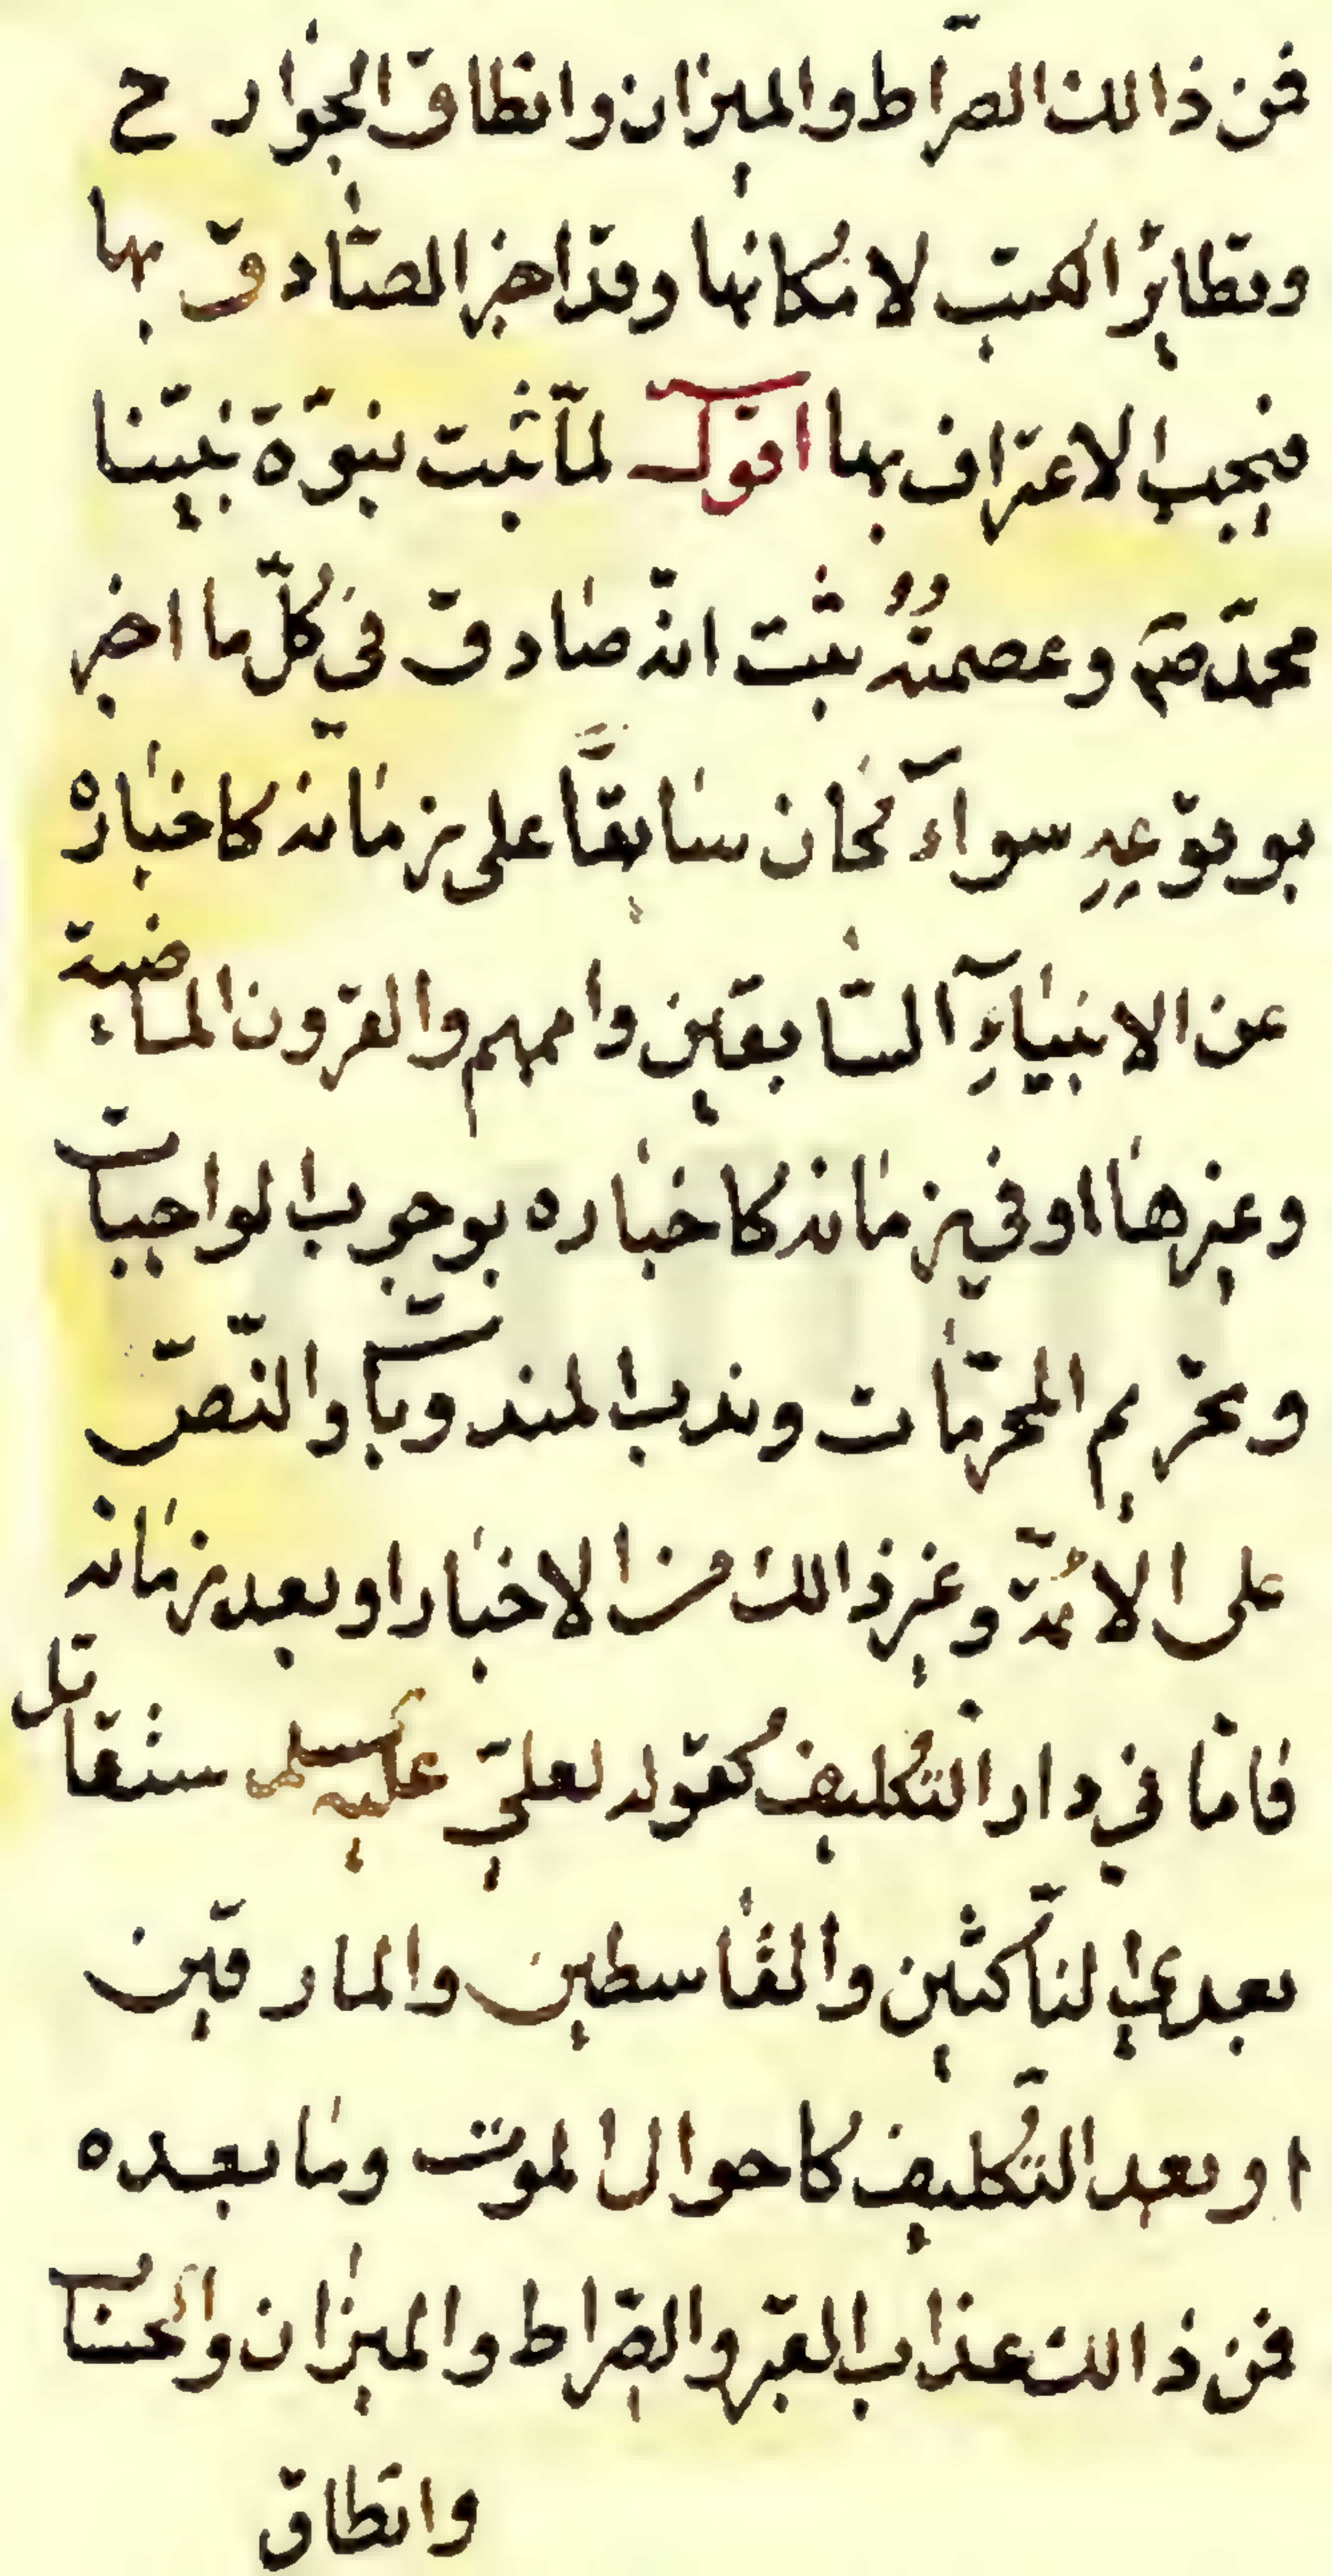 فمن ذالك الصّراط والميزان وانطاق الجوارح
وتطاير الكتب لامكانها وقد اخبر الصّادق بها
فيجب الاعتراف بها اقول لمّا ثبت نبوّة نبيّنا
محمّد صم وعصمته ثبت انّه صادق في كلّ ما اخبر
بوقوعه سوآء كان سابقًا على زمانه كاخباره
عن الانبيآء السّابقين واممهم والقرون الماضية
وغيرها او في زمانه كاخباره بوجوب الواجبات
وتحريم المحرّمات وندب المندوبات والنّصّ
على الائمّة وغير ذالك من الاخبار او بعد زمانه
فامّا في دار التّكليف كقوله لعليّ عليه السلم ستقاتل
بعدي النّاكثين والقاسطين والمارقين
او بعد التّكليف كاحوال الموت وما بعده
فمن ذالك عذاب القبر والصّراط والميزان والحساب
وانطاق